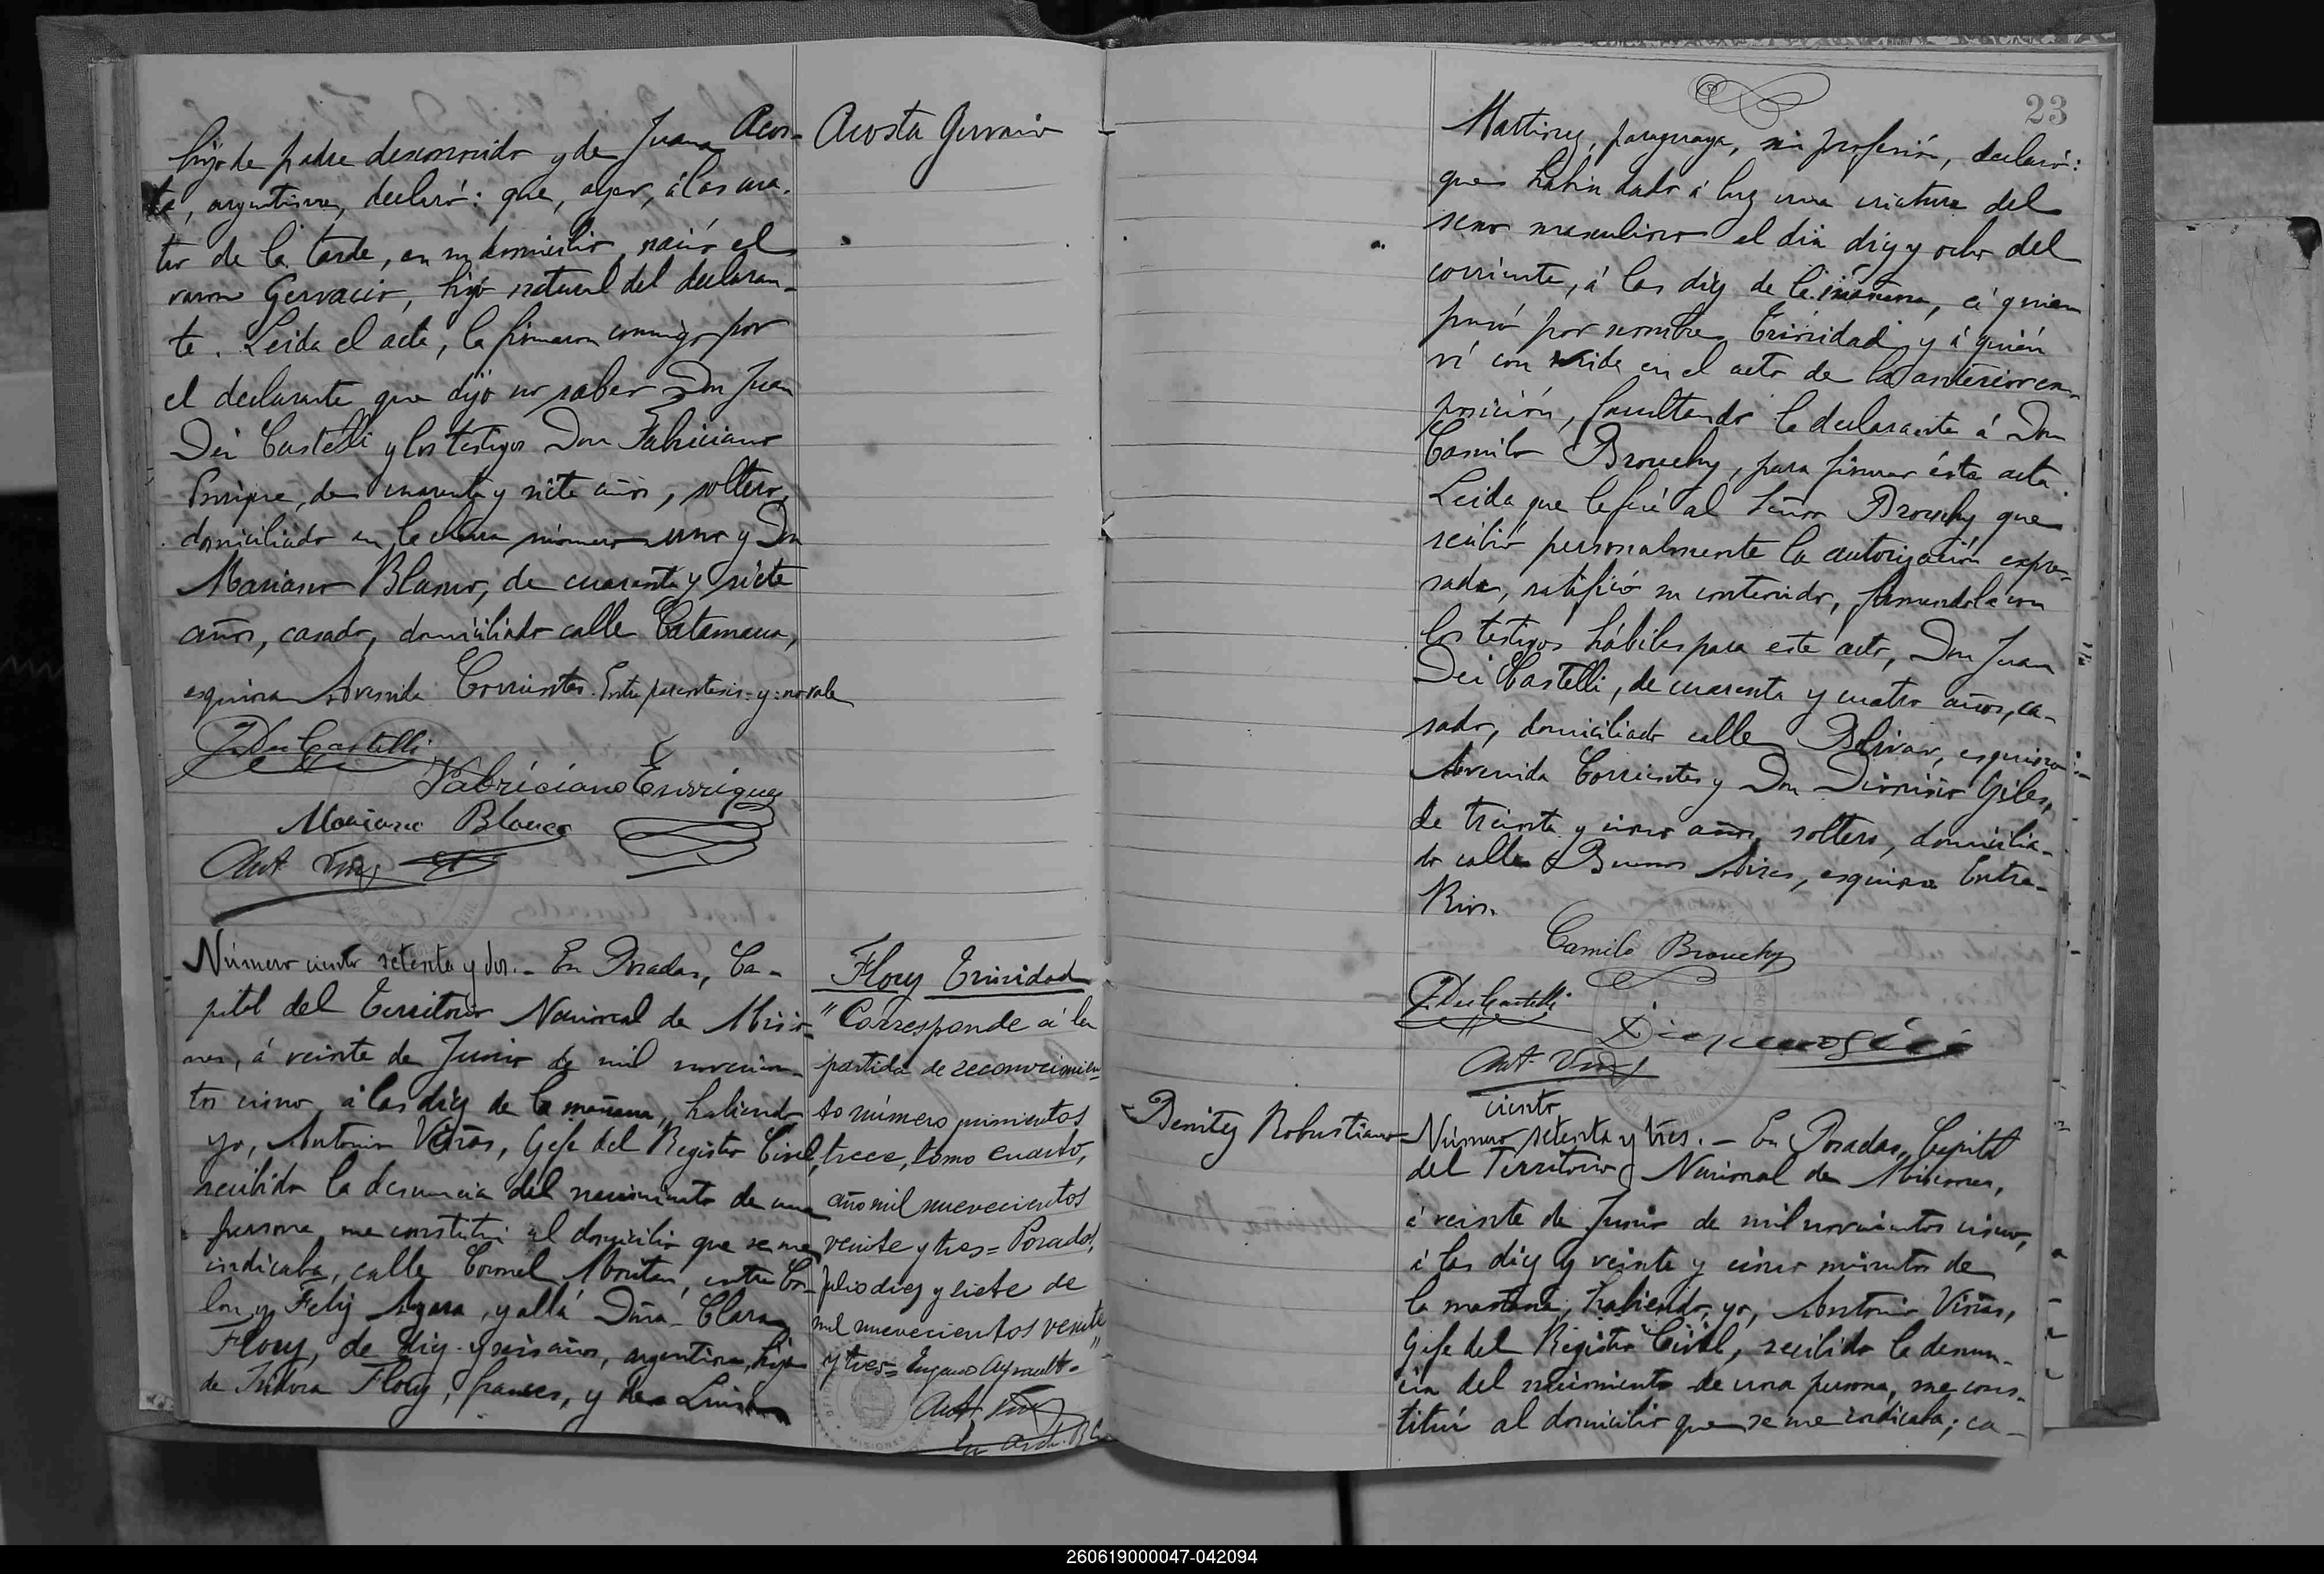 hijo de padre desconocido y de Juana Acos-
ta, argentina, declaró: que, ayer, á las cua-
tro de la tarde, en su domicilio, nació el
varon Gervacio, hijo natural del declaran-
te. Leida el acta, la firmaron conmigo por
el declarante que dijo no saber Don Juan
Dei Castelli y los testigos Don Fabriciano
Enrique, de cuarenta y siete años, soltero,
domiciliado en la chacra número uno y Don
Mariano Blanco, de cuarenta y siete
años, casado, domiciliado calle Catamarca,
esquina Avenida Corrientes. Entre parentesis - y - no vale
J. Dei Castelli
Fabriciano Enrrique
Mariano Blanco
Ant. Viñas
Acosta Gervacio
Número ciento setenta y dos. - En Posadas, Ca-
pital del Territorio Nacional de Misio-
nes, á veinte de Junio de mil novecien-
tos cinco, á las diez de la mañana, habiendo
yo, Antonio Viñas, Gefe del Registro Civil,
recibido la denuncia del nacimiento de una
persona me constituí al domicilio que se me
indicaba, calle Coronel, entre Co-
lon y Feliz Azara, y allá Doña Clara
Flory, de diez y seis años, argentina, hija
de Flory, frances, y de Luisa
Flory Trinidad
"Corresponde á la
partida de reconocimien-
to número quinientos
trece, tomo cuarto,
año mil nuevecientos
veinte y tres = Posadas,
julio diez y siete de
mil nuevecientos veinte
y tres = "
Ant. Viñas
MISIONES
23
Martinez, paraguaya, sin profesión, declaró:
que habia dado á luz una criatura del
sexo masculino el dia diez y ocho del
corriente, á las diez de la mañana, á quien
puso por nombre Trinidad y á quién
ví con vida en el acto de la anterior ex-
posición, facultando la declarante á Don
Camilo Brouchy, para firmar ésta acta.
Leida que le fué al Señor Brouchy que
recibió personalmente la autorización expre-
sada, ratificó su contenido, firmandola con
los testigos hábiles para este acto, Don Juan
Dei Castelli, de cuarenta y cuatro años, ca-
sado, domiciliado calle Bolivar, esquina
Avenida Corrientes y Don Dionisio Giles,
de treinta y cinco años, soltero, domicilia-
do calle Buenos Aires, esquina Entre-
Rios.
Camilo Brouchy
J. Dei Castelli
Ant. Viñas
Benitez Robustiano
ciento
Número setenta y tres. - En Posadas, Capital
del Territorio Nacional de Misiones,
á veinte de Junio de mil novecientos cinco,
á las diez y veinte y cinco minutos de
la mañana, habiendo, yo, Antonio Viñas,
Gefe del Registro Civil, recibido la denun-
cia del nacimiento de una persona, me cons-
tituí al domicilio que se me indicaba; ca-
260619000047-042094